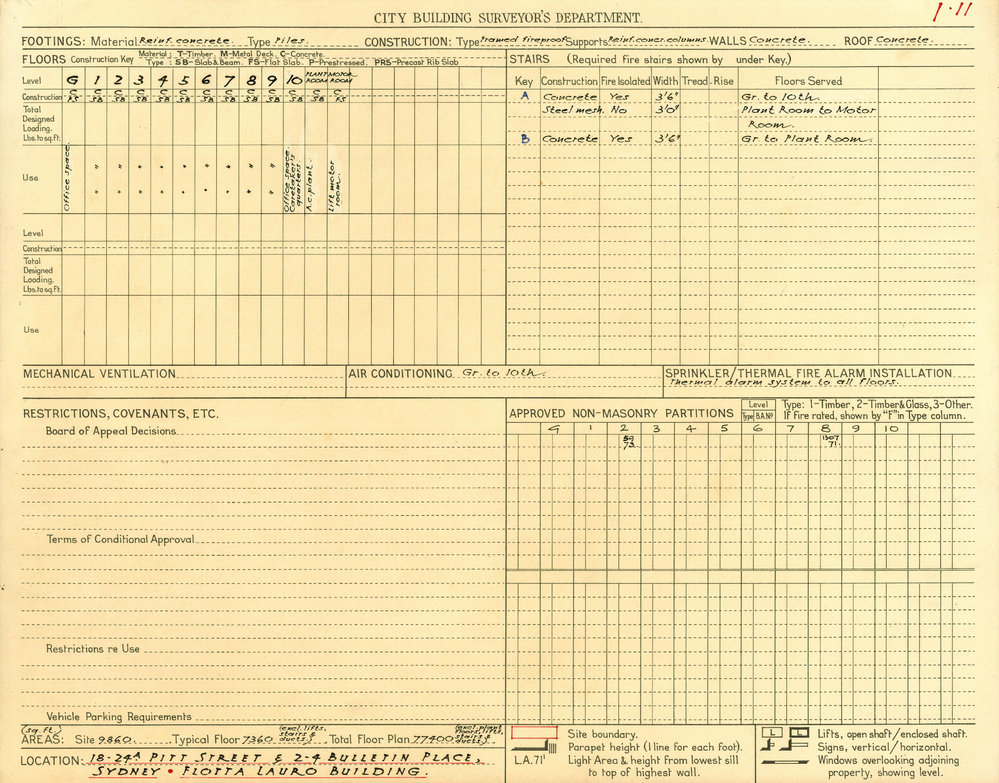 CITY BUILDING SURVEYOR'S DEPARTMENT.
1·11
FOOTINGS: Material Reinf. concrete. Type Piles. CONSTRUCTION: Type Framed fireproof Supports Reinf. concr. columns. WALLS Concrete. ROOF Concrete.
FLOORS Construction Key Material: T-Timber, M-Metal Deck, C-Concrete.
Type: SB-Slab & Beam, FS-Flat Slab, P-Prestressed, PRS-Precast Rib Slab
Level G 1 2 3 4 5 6 7 8 9 10 PLANT ROOM MOTOR ROOM
Construction C FS C SB C SB C SB C SB C SB C SB C SB C SB C SB C SB C SB C FS
Total Designed Loading. Lbs. to sq. ft.
Use Office space. " " " " " " " " " Office space. Caretaker's quarters. A.c. plant. Lift motor room.
" " " " " " " " "
Level
Construction
Total Designed Loading. Lbs. to sq. ft.
Use
STAIRS (Required fire stairs shown by under Key.)
Key Construction Fire Isolated Width Tread Rise Floors Served
A Concrete Yes 3'6" Gr. to 10th.
Steel mesh. No 3'0" Plant Room to Motor
Room.
B Concrete Yes 3'6" Gr. to Plant Room.
MECHANICAL VENTILATION
AIR CONDITIONING Gr. to 10th.
SPRINKLER/THERMAL FIRE ALARM INSTALLATION
Thermal alarm system to all floors.
RESTRICTIONS, COVENANTS, ETC.
Board of Appeal Decisions
Terms of Conditional Approval
Restrictions re Use
Vehicle Parking Requirements
APPROVED NON-MASONRY PARTITIONS Level Type B.A.Nº Type: 1-Timber, 2-Timber & Glass, 3-Other.
If Fire rated, shown by "F" in Type column.
G 1 2 3 4 5 6 7 8 9 10
1307
73. 71.
AREAS: (sq. ft.) Site 9860. Typical Floor 7360 (excl. lifts, stairs & ducts.) Total Floor Plan 77400 (excl. plant floors, lifts, stairs & ducts.)
LOCATION: 18-24A PITT STREET & 2-4 BULLETIN PLACE,
SYDNEY • FLOTTA LAURO BUILDING.
Site boundary.
Parapet height (1 line for each foot).
L.A.71' Light Area & height from lowest sill
to top of highest wall.
L L Lifts, open shaft/enclosed shaft.
Signs, vertical/horizontal.
Windows overlooking adjoining
property, showing level.